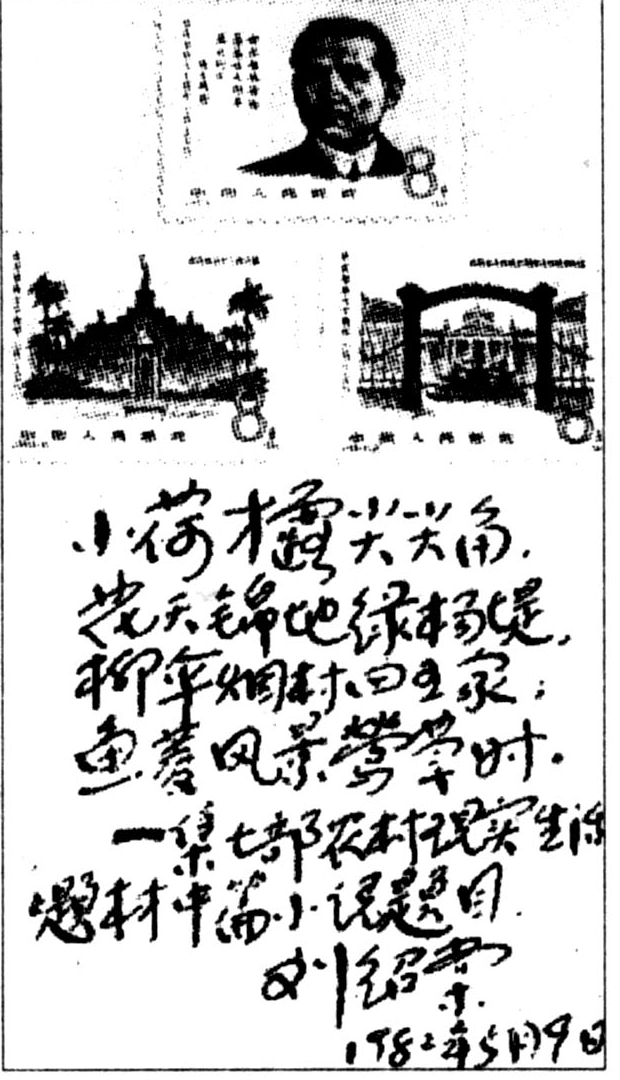 8
中国人民邮政
8
中国人民邮政
8
中国人民邮政
小荷才露尖尖角，
花天锦地绿杨堤，
柳伞烟村四五家；
鱼菱风景莺草时。
一集七部农村现实生活
题材中篇小说题目
刘绍棠
1982年5月9日